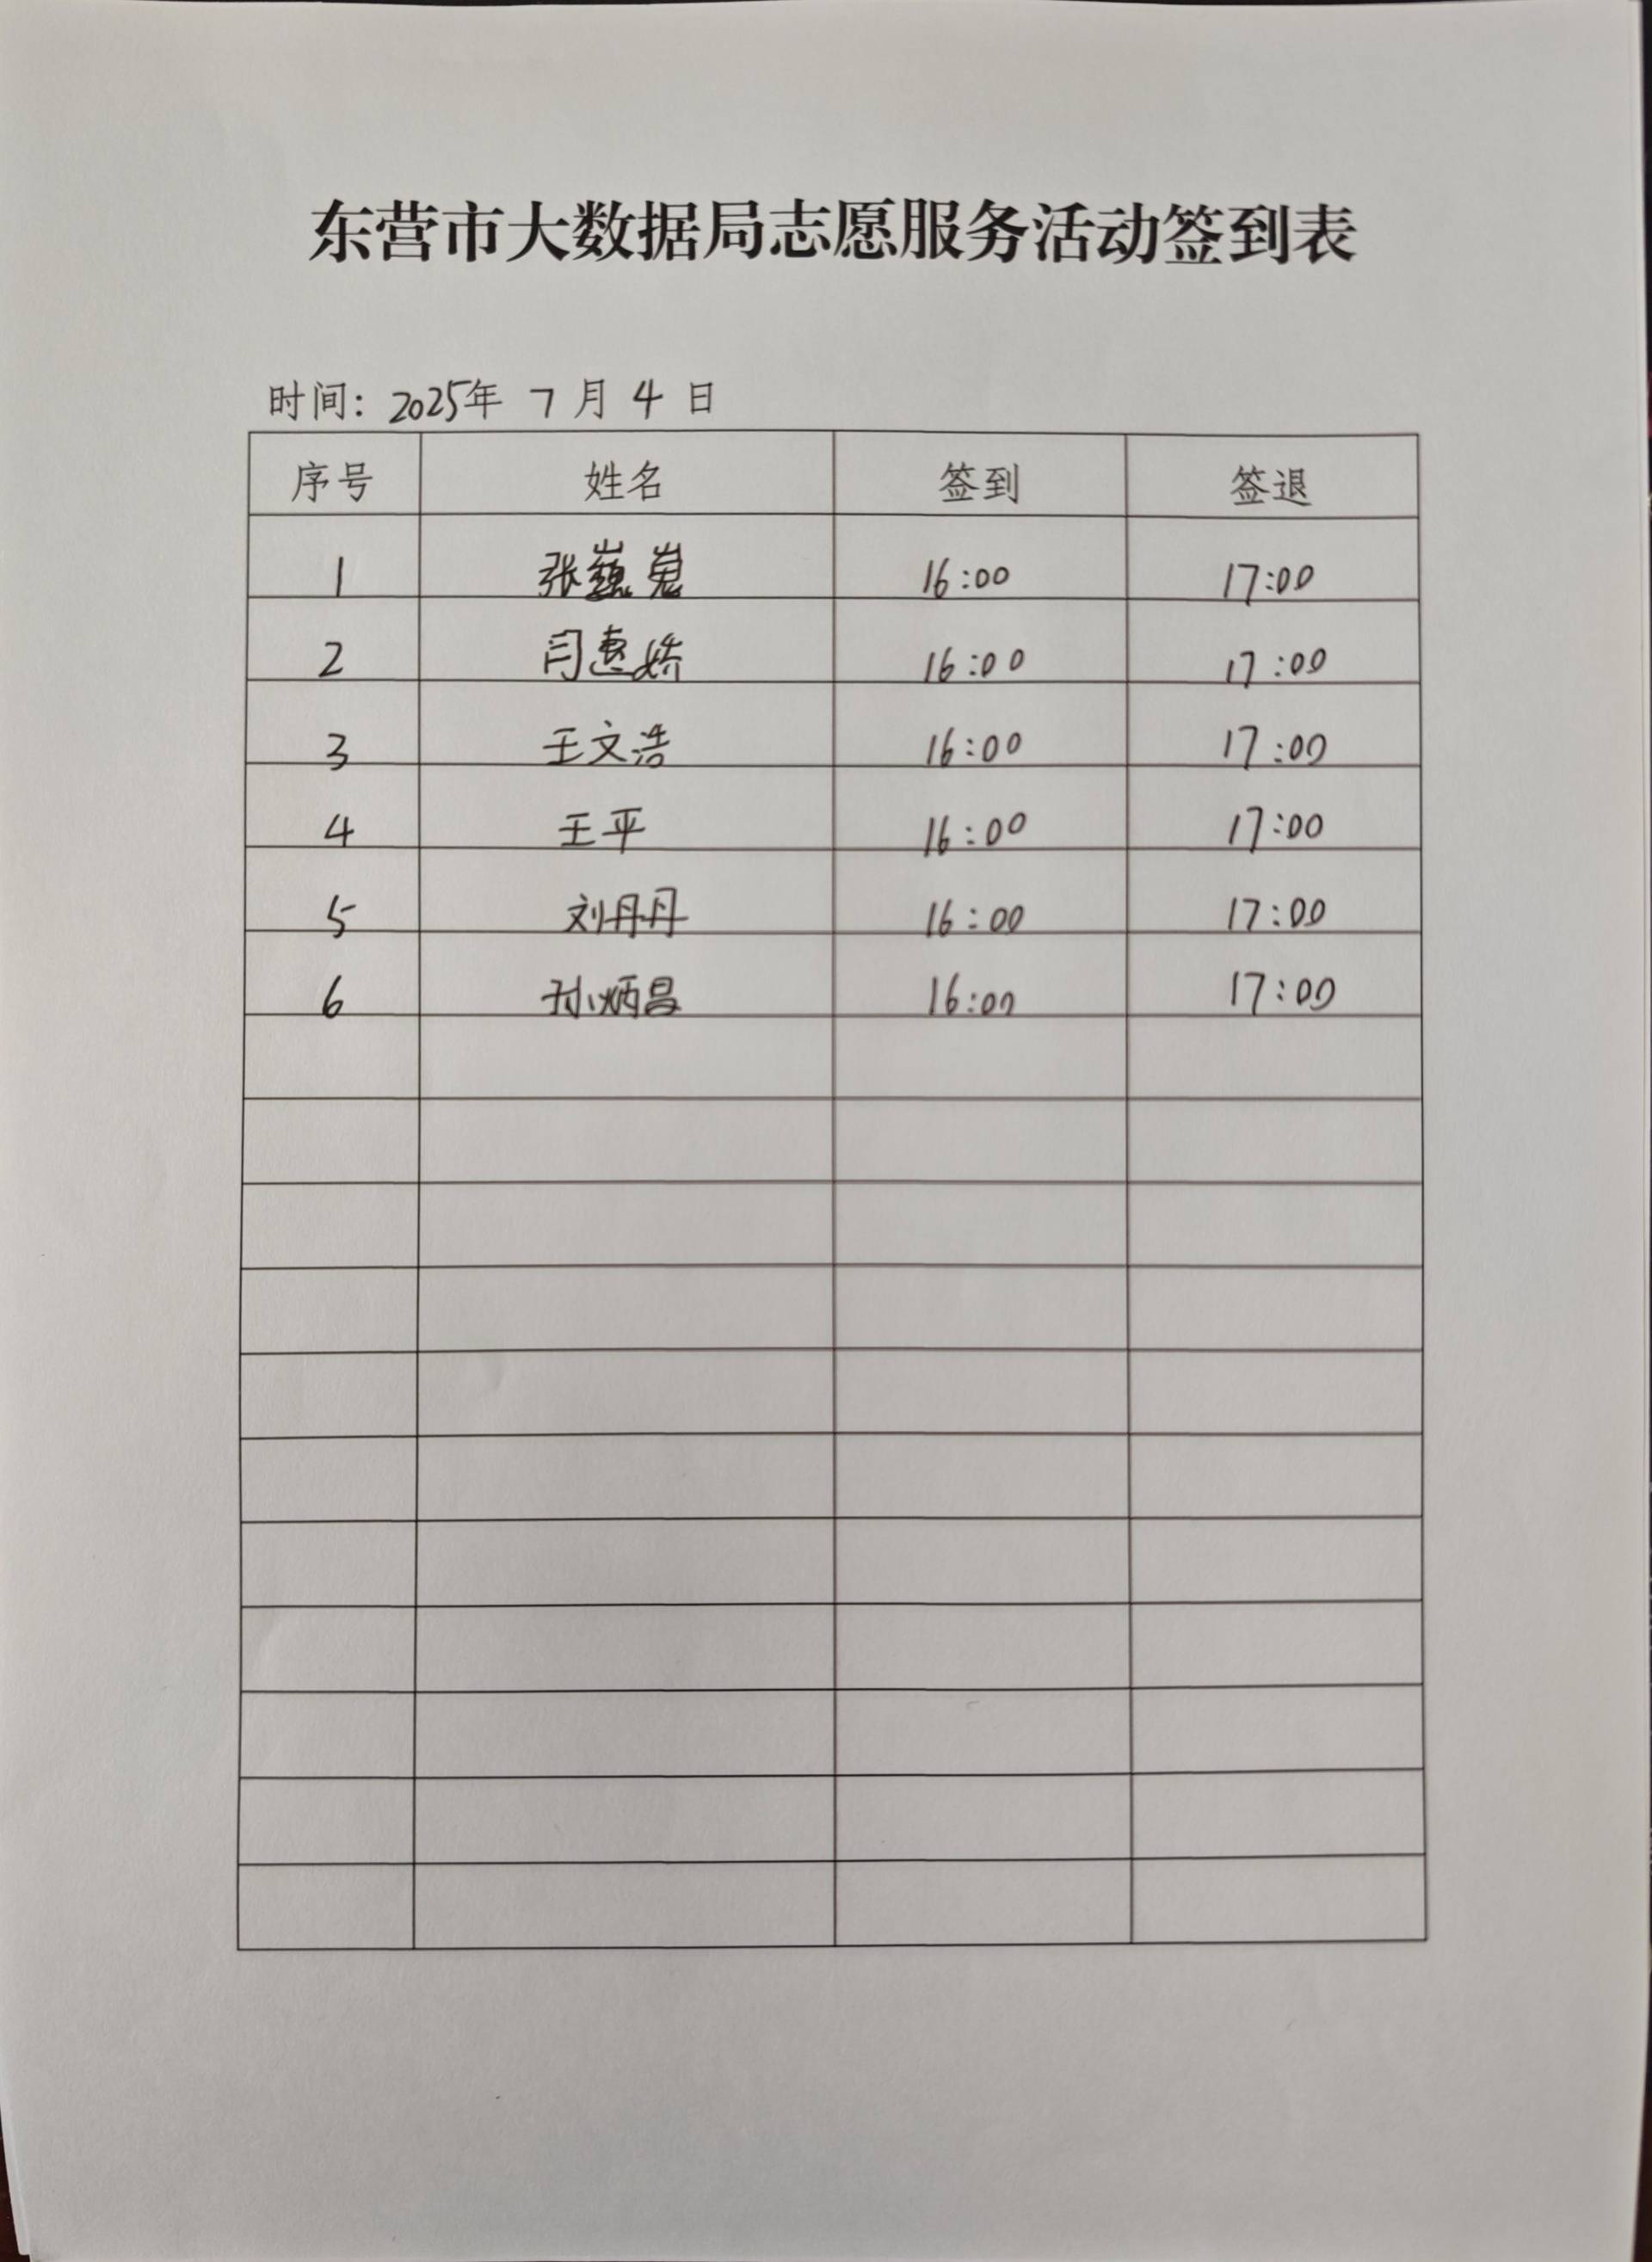 东营市大数据局志愿服务活动签到表
时间: 2025年 7 月 4 日
序号 姓名 签到 签退
1 张巍嵬 16:00 17:00
2 闫惠娇 16:00 17:00
3 王文浩 16:00 17:00
4 王平 16:00 17:00
5 刘丹丹 16:00 17:00
6 孙炳昌 16:00 17:00